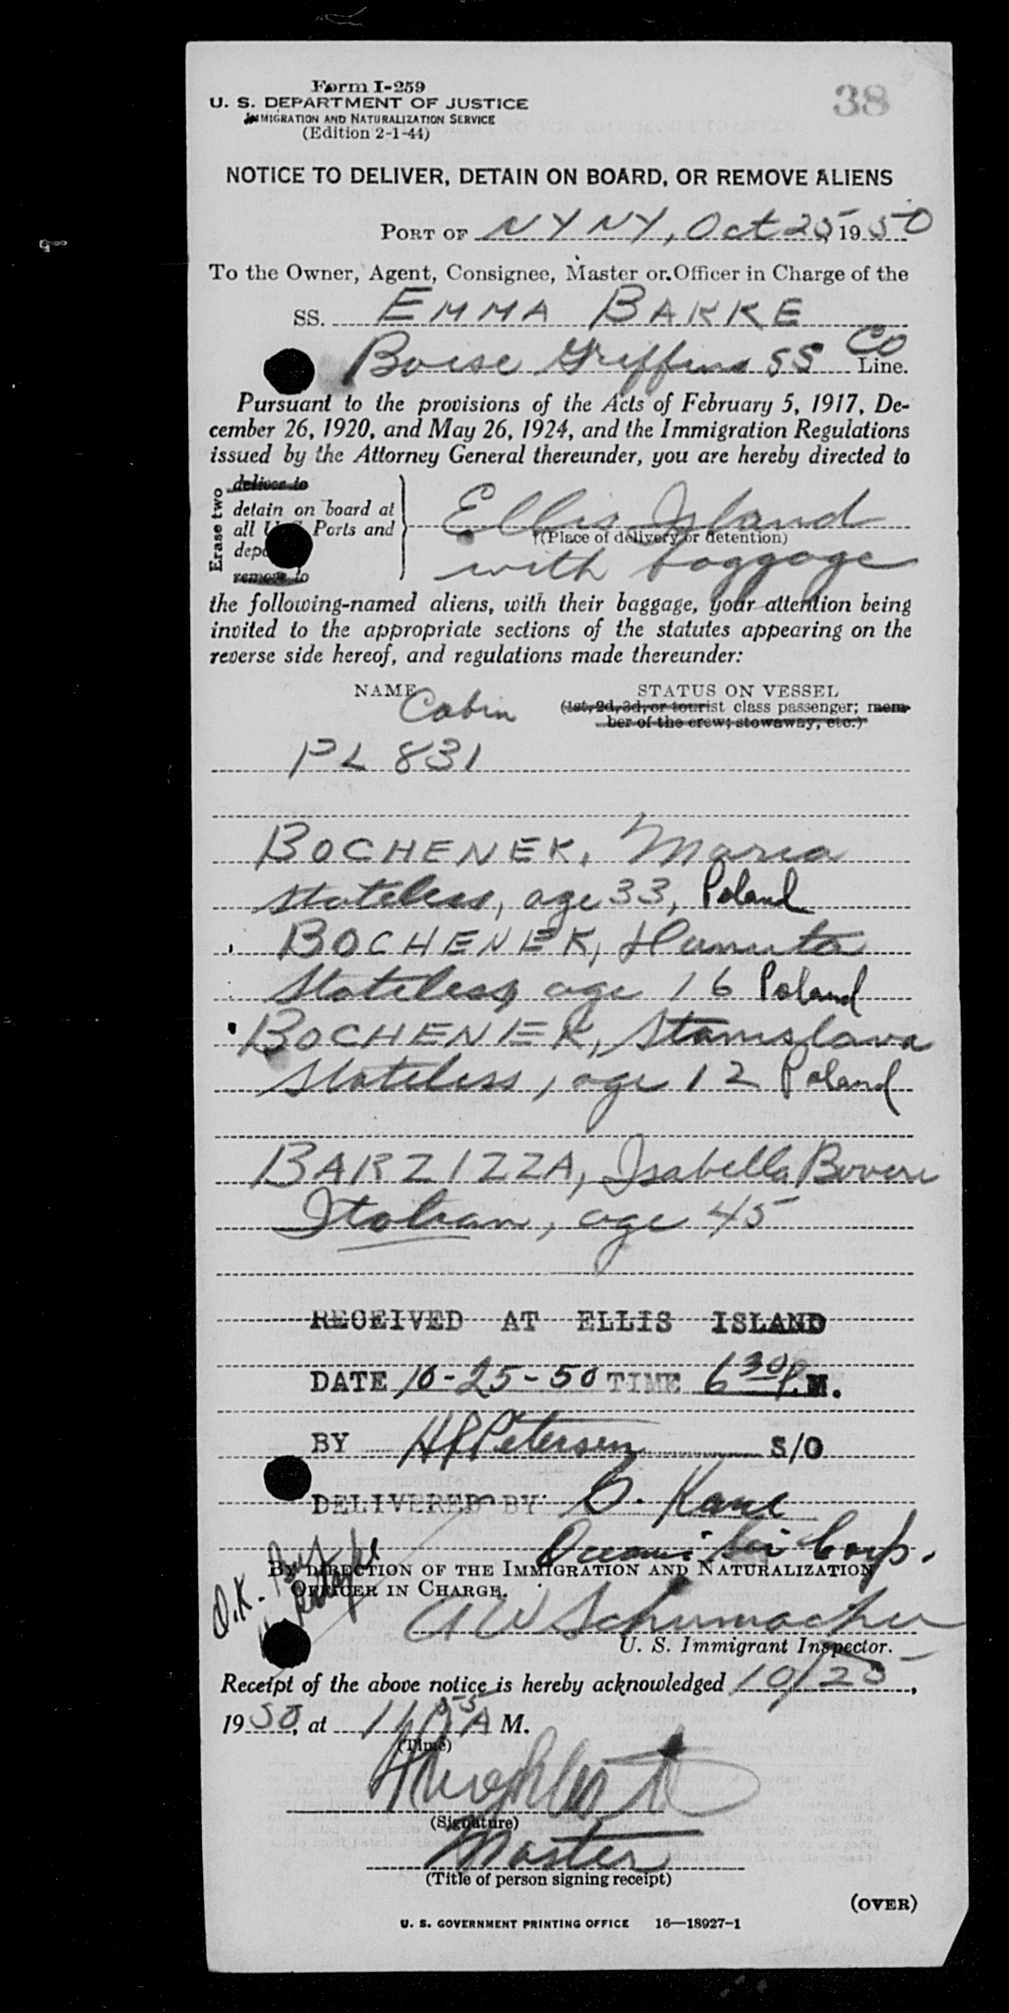 Form I-259
38
U. S. DEPARTMENT OF JUSTICE
IMMIGRATION AND NATURALIZATION SERVICE
(Edition 2-1-44)
NOTICE TO DELIVER, DETAIN ON BOARD, OR REMOVE ALIENS
PORT OF NY NY, Oct 25, 1950
To the Owner, Agent, Consignee, Master or Officer in Charge of the
SS. EMMA BAKKE
Boise Griffins SS Co Line.
Pursuant to the provisions of the Acts of February 5, 1917, De-
cember 26, 1920, and May 26, 1924, and the Immigration Regulations
issued by the Attorney General thereunder, you are hereby directed to
Erase two
deliver to
detain on board at
all U. S. Ports and
remove to
Ellis Island
(Place of delivery or detention)
with baggage
the following-named aliens, with their baggage, your attention being
invited to the appropriate sections of the statutes appearing on the
reverse side hereof, and regulations made thereunder:
NAME STATUS ON VESSEL
Cabin (1st, 2d, 3d, or tourist class passenger; mem-
ber of the crew; stowaway, etc.)
PL 831
BOCHENEK, Maria
Stateless, age 33, Poland
BOCHENEK, Danuta
Stateless, age 16 Poland
BOCHENEK, Stanislava
Stateless, age 12 Poland
BARZIZZA, Isabella Bovere
Italian, age 45
RECEIVED AT ELLIS ISLAND
DATE 10-25-50 TIME 6 30 P.M.
BY HP Petersen S/O
DELIVERED BY: Kane
Corp.
O.K.
BY DIRECTION OF THE IMMIGRATION AND NATURALIZATION
OFFICER IN CHARGE.
A W Schumacher
U. S. Immigrant Inspector.
Receipt of the above notice is hereby acknowledged 10/25,
1950, at 11 55 A M.
(Time)
(Signature)
Master
(Title of person signing receipt)
(OVER)
U. S. GOVERNMENT PRINTING OFFICE 16—18927-1